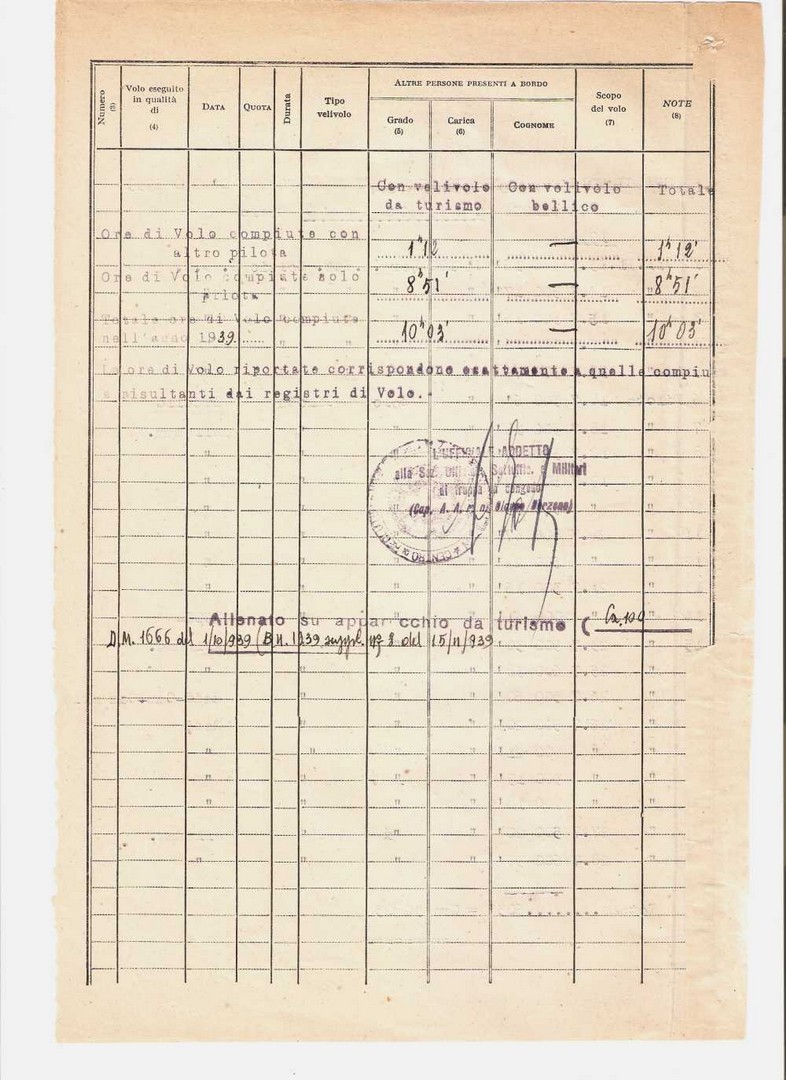 ALTRE PERSONE PRESENTI A BORDO
Numero (3)
Volo eseguito in qualità di (4)
DATA
QUOTA
Durata
Tipo velivolo
Grado (5)
Carica (6)
COGNOME
Scopo del volo (7)
NOTE (8)
Con velivolo da turismo
Con velivolo bellico
Totale
Ore di Volo compiute con
altro pilota 1ʰ12 — 1ʰ12'
Ore di Volo compiute solo
pilota 8ʰ51' — 8ʰ51'
Totale ore di Volo compiute
nell'anno 1939. 10ʰ03' — 10ʰ03'
Le ore di Volo riportate corrispondono esattamente a quelle compiu
e risultanti dai registri di Volo.
L'UFFICIALE ADDETTO
alla Sez. Uff. Sottuff. e Militari
di truppa in congedo
(Cap. A. A. r. n.
CENTRO
Allenato su apparecchio da turismo ( Ca.100
D.M. 1666 del 1/10/939 (B.U. 1939 suppl. nº 8 del 15/11/939